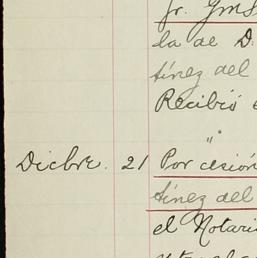 Jr. Gms
la de D.
tínez del
Recibió
"
Dicbre. 21 Por cesión
tínez del
el Notari